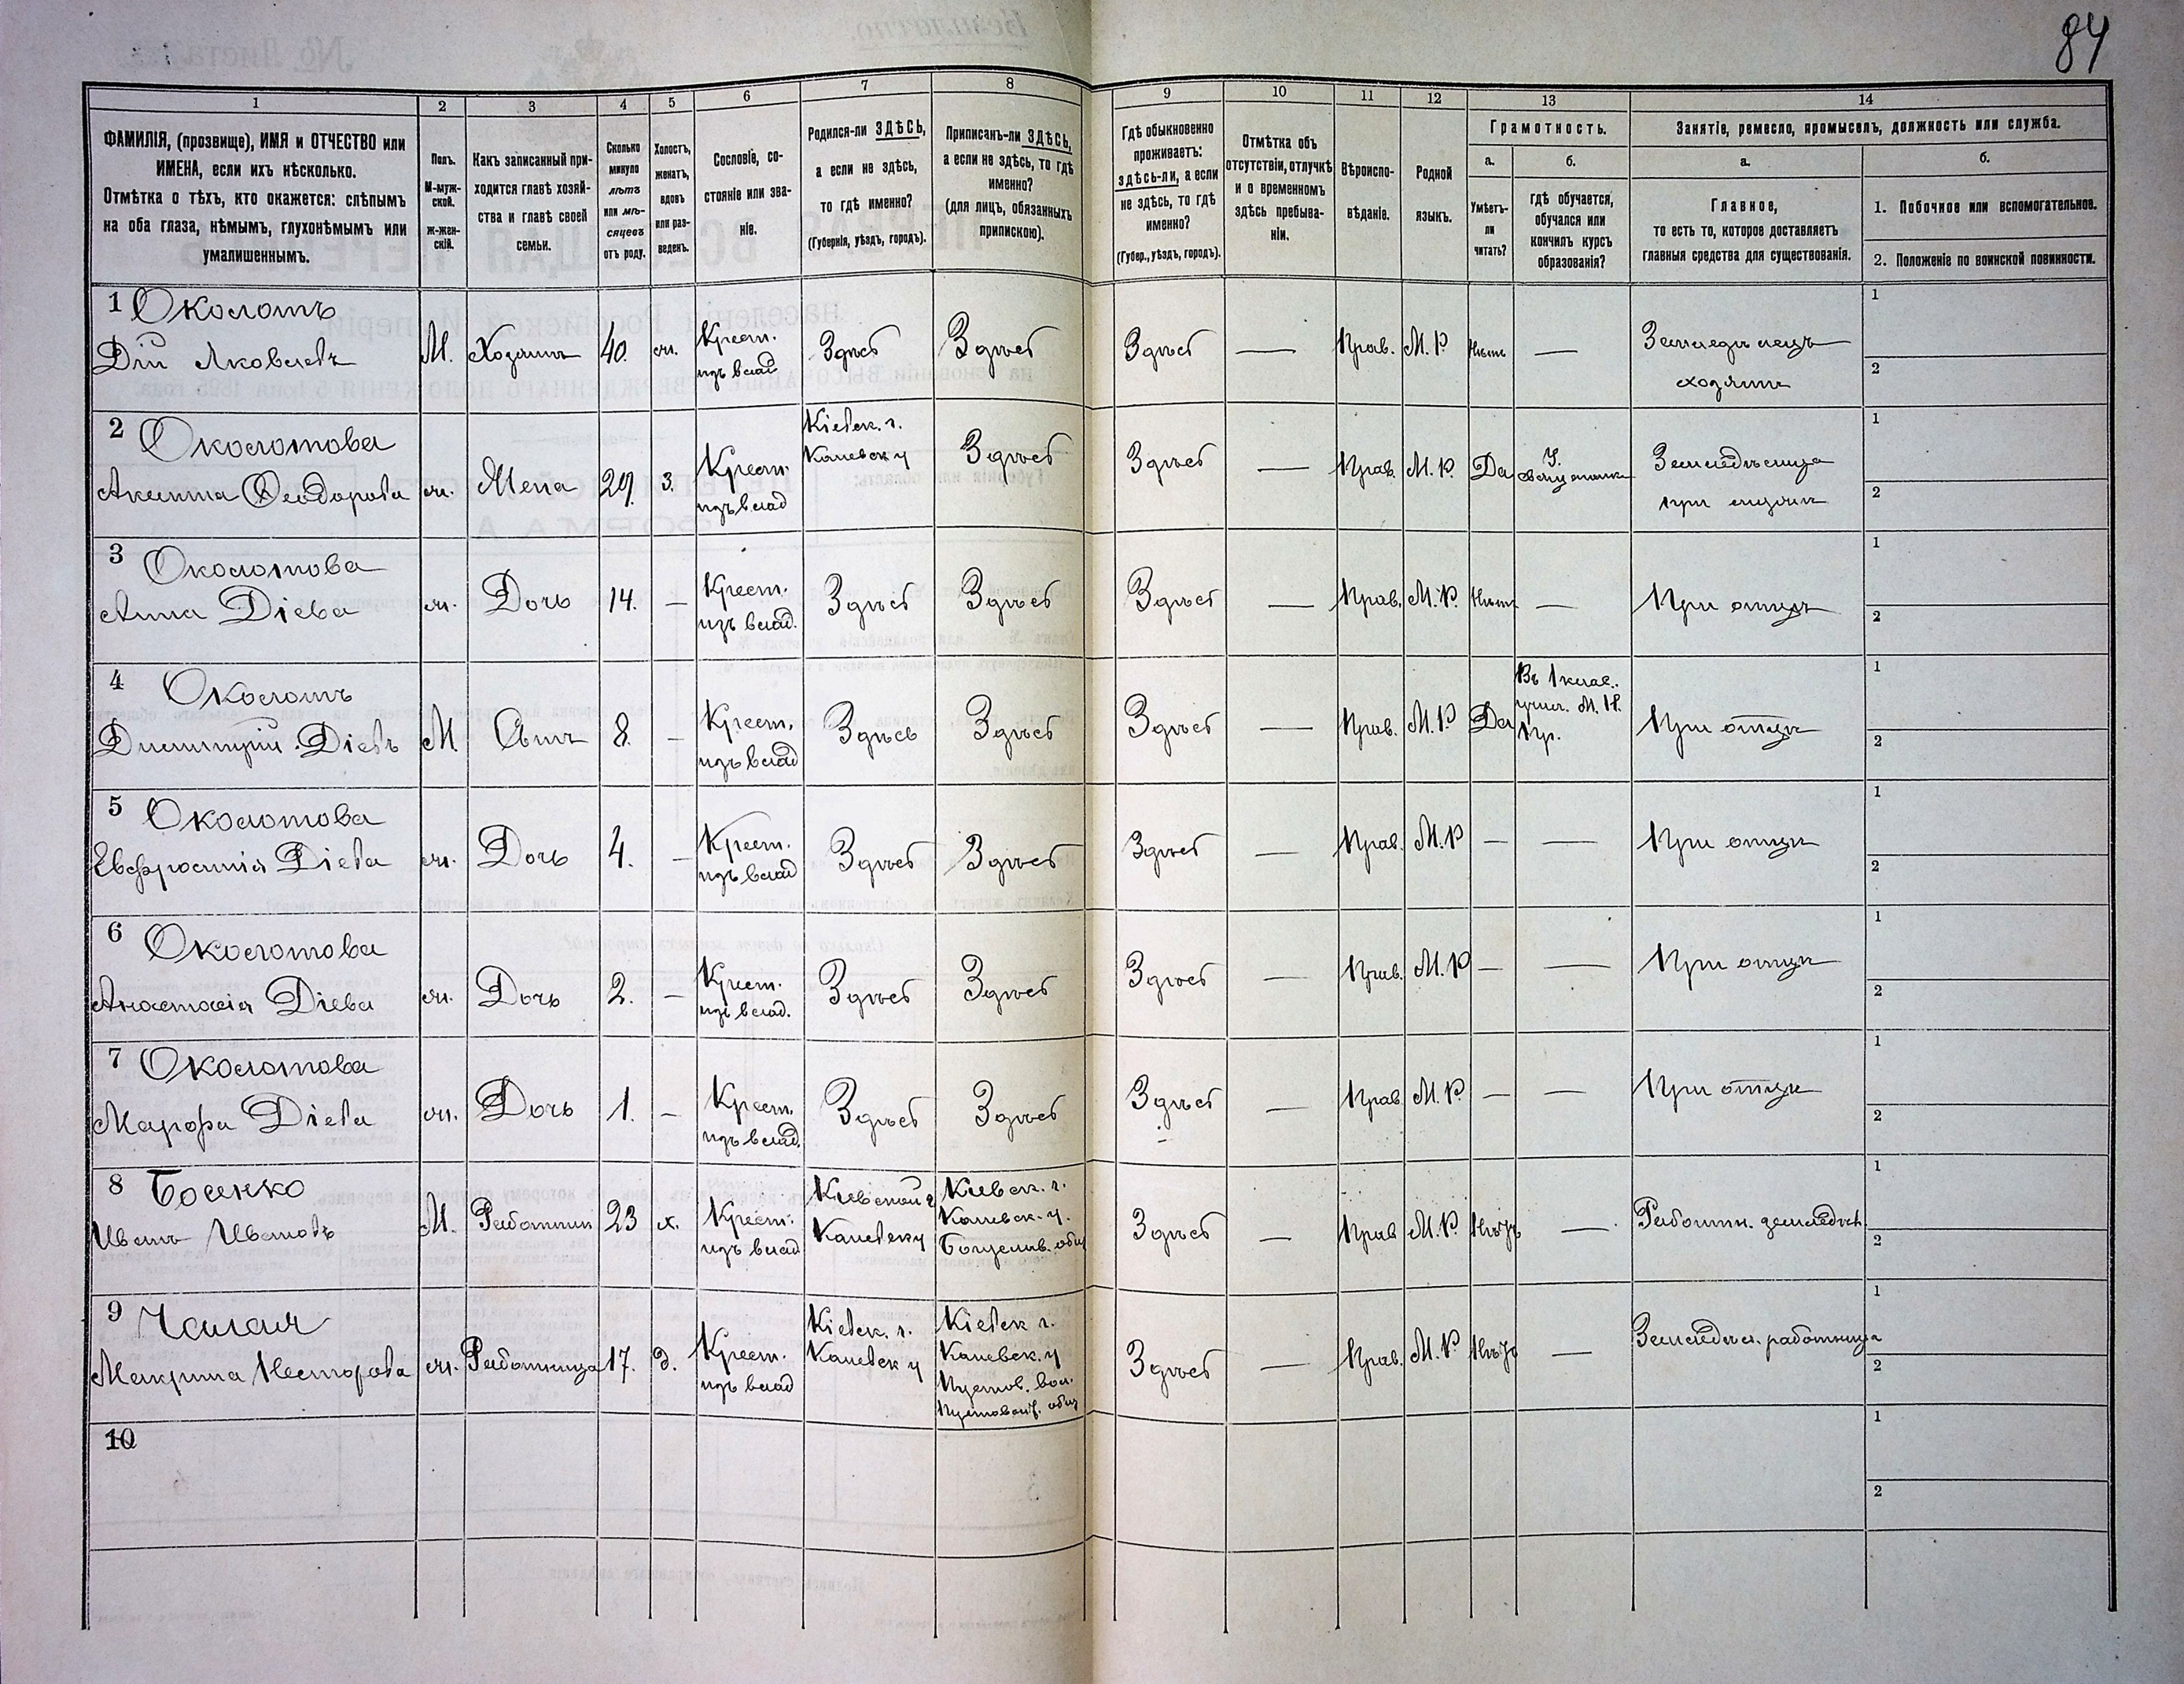 84
1 2 3 4 5 6 7 8 9 10 11 12 13 14
ФАМИЛІЯ, (прозвище), ИМЯ и ОТЧЕСТВО или
ИМЕНА, если ихъ нѣсколько.
Отмѣтка о тѣхъ, кто окажется: слѣпымъ
на оба глаза, нѣмымъ, глухонѣмымъ или
умалишеннымъ.
Полъ.
М-муж-
ской.
ж-жен-
скій.
Какъ записанный при-
ходится главѣ хозяй-
ства и главѣ своей
семьи.
Сколько
минуло
лѣтъ
или мѣ-
сяцевъ
отъ роду.
Холостъ,
женатъ,
вдовъ
или раз-
веденъ.
Сословіе, со-
стояніе или зва-
ніе.
Родился-ли ЗДѢСЬ,
а если не здѣсь,
то гдѣ именно?
(Губернія, уѣздъ, городъ).
Приписанъ-ли ЗДѢСЬ,
а если не здѣсь, то гдѣ
именно?
(для лицъ, обязанныхъ
припискою).
Гдѣ обыкновенно
проживаетъ:
здѣсь-ли, а если
не здѣсь, то гдѣ
именно?
(Губер., уѣздъ, городъ).
Отмѣтка объ
отсутствіи, отлучкѣ
и о временномъ
здѣсь пребыва-
ніи.
Вѣроиспо-
вѣданіе.
Родной
языкъ.
Грамотность.
а. б.
Умѣетъ-
ли
читать?
гдѣ обучается,
обучался или
кончилъ курсъ
образованія?
Занятіе, ремесло, промыселъ, должность или служба.
а. б.
Главное,
то есть то, которое доставляетъ
главныя средства для существованія.
1. Побочное или вспомогательное.
2. Положеніе по воинской повинности.
1 Околотъ
Дій Яковлевъ
М. Хозяинъ 40. ж. Крест.
изъ влад Здѣсь Здѣсь Здѣсь — Прав. М. Р. Нѣтъ — Земледѣлецъ
хозяинъ
1
2
2 Околотова
Акилина Ѳеодорова
ж. Жена 29. з. Крест.
изъ влад
Кіевск. г.
Каневск у Здѣсь Здѣсь — Прав. М. Р. Да
Земледѣлица
при мужѣ
1
2
3 Околотова
Анна Діева
ж. Дочь 14. — Крест.
изъ влад. Здѣсь Здѣсь Здѣсь — Прав. М. Р. Нѣтъ — При отцѣ
1
2
4 Околотъ
Димитрій Діевъ
М. Сынъ 8. — Крест.
изъ влад Здѣсь Здѣсь Здѣсь — Прав. М. Р Да
Въ 1 клас.
учил. М. Н.
Пр.
При отцѣ
1
2
5 Околотова
Евфросинія Діева
ж. Дочь 4. — Крест.
изъ влад Здѣсь Здѣсь Здѣсь — Прав. М. Р — — При отцѣ
1
2
6 Околотова
Анастасія Діева
ж. Дочь 2. — Крест.
изъ влад. Здѣсь Здѣсь Здѣсь — Прав. М. Р — — При отцѣ
1
2
7 Околотова
Марфа Діева
ж. Дочь 1. — Крест.
изъ влад. Здѣсь Здѣсь Здѣсь — Прав. М. Р. — — При отцѣ
1
2
8 Босенко
Иванъ Ивановъ
М. Работник 23 х. Крест.
изъ влад
Киевской г
Каневск у
Киевск. г.
Каневск. у.
Здѣсь — Прав М. Р. — Работн. земледѣл.
1
2
9 Чалая
Макрина Несторова
ж. Работница 17. д. Крест.
изъ влад
Кіевск. г.
Каневск у
Кіевск г.
Каневск. у
Пустов. вол.
Здѣсь — Прав. М. Р — Земледѣл. работница
1
2
10
1
2